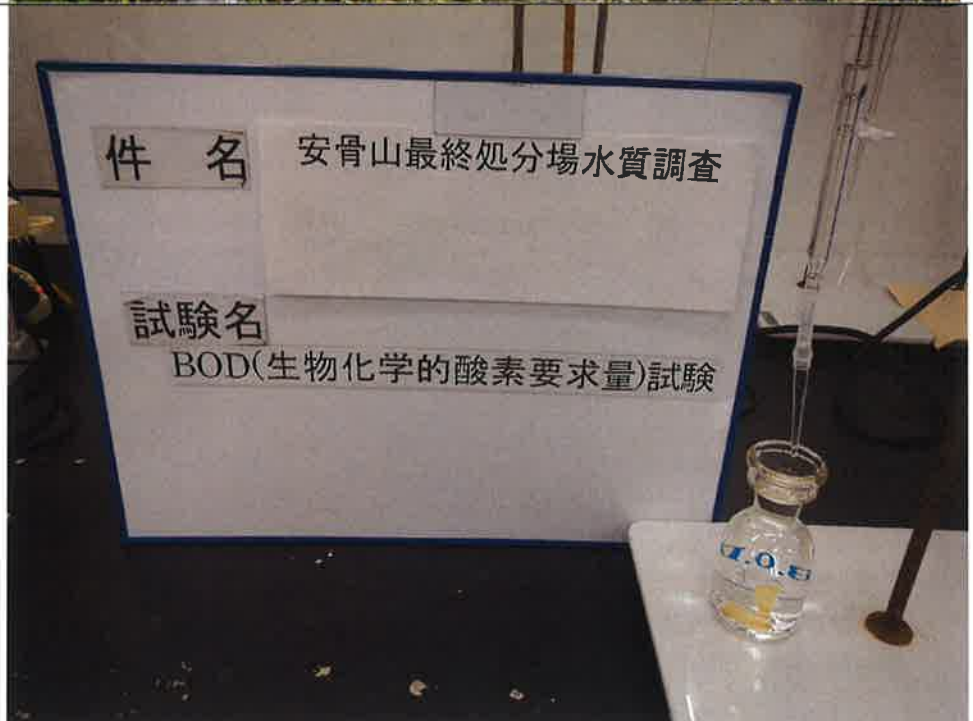 件　名
安骨山最終処分場水質調査
試験名
BOD(生物化学的酸素要求量)試験
B.O.D